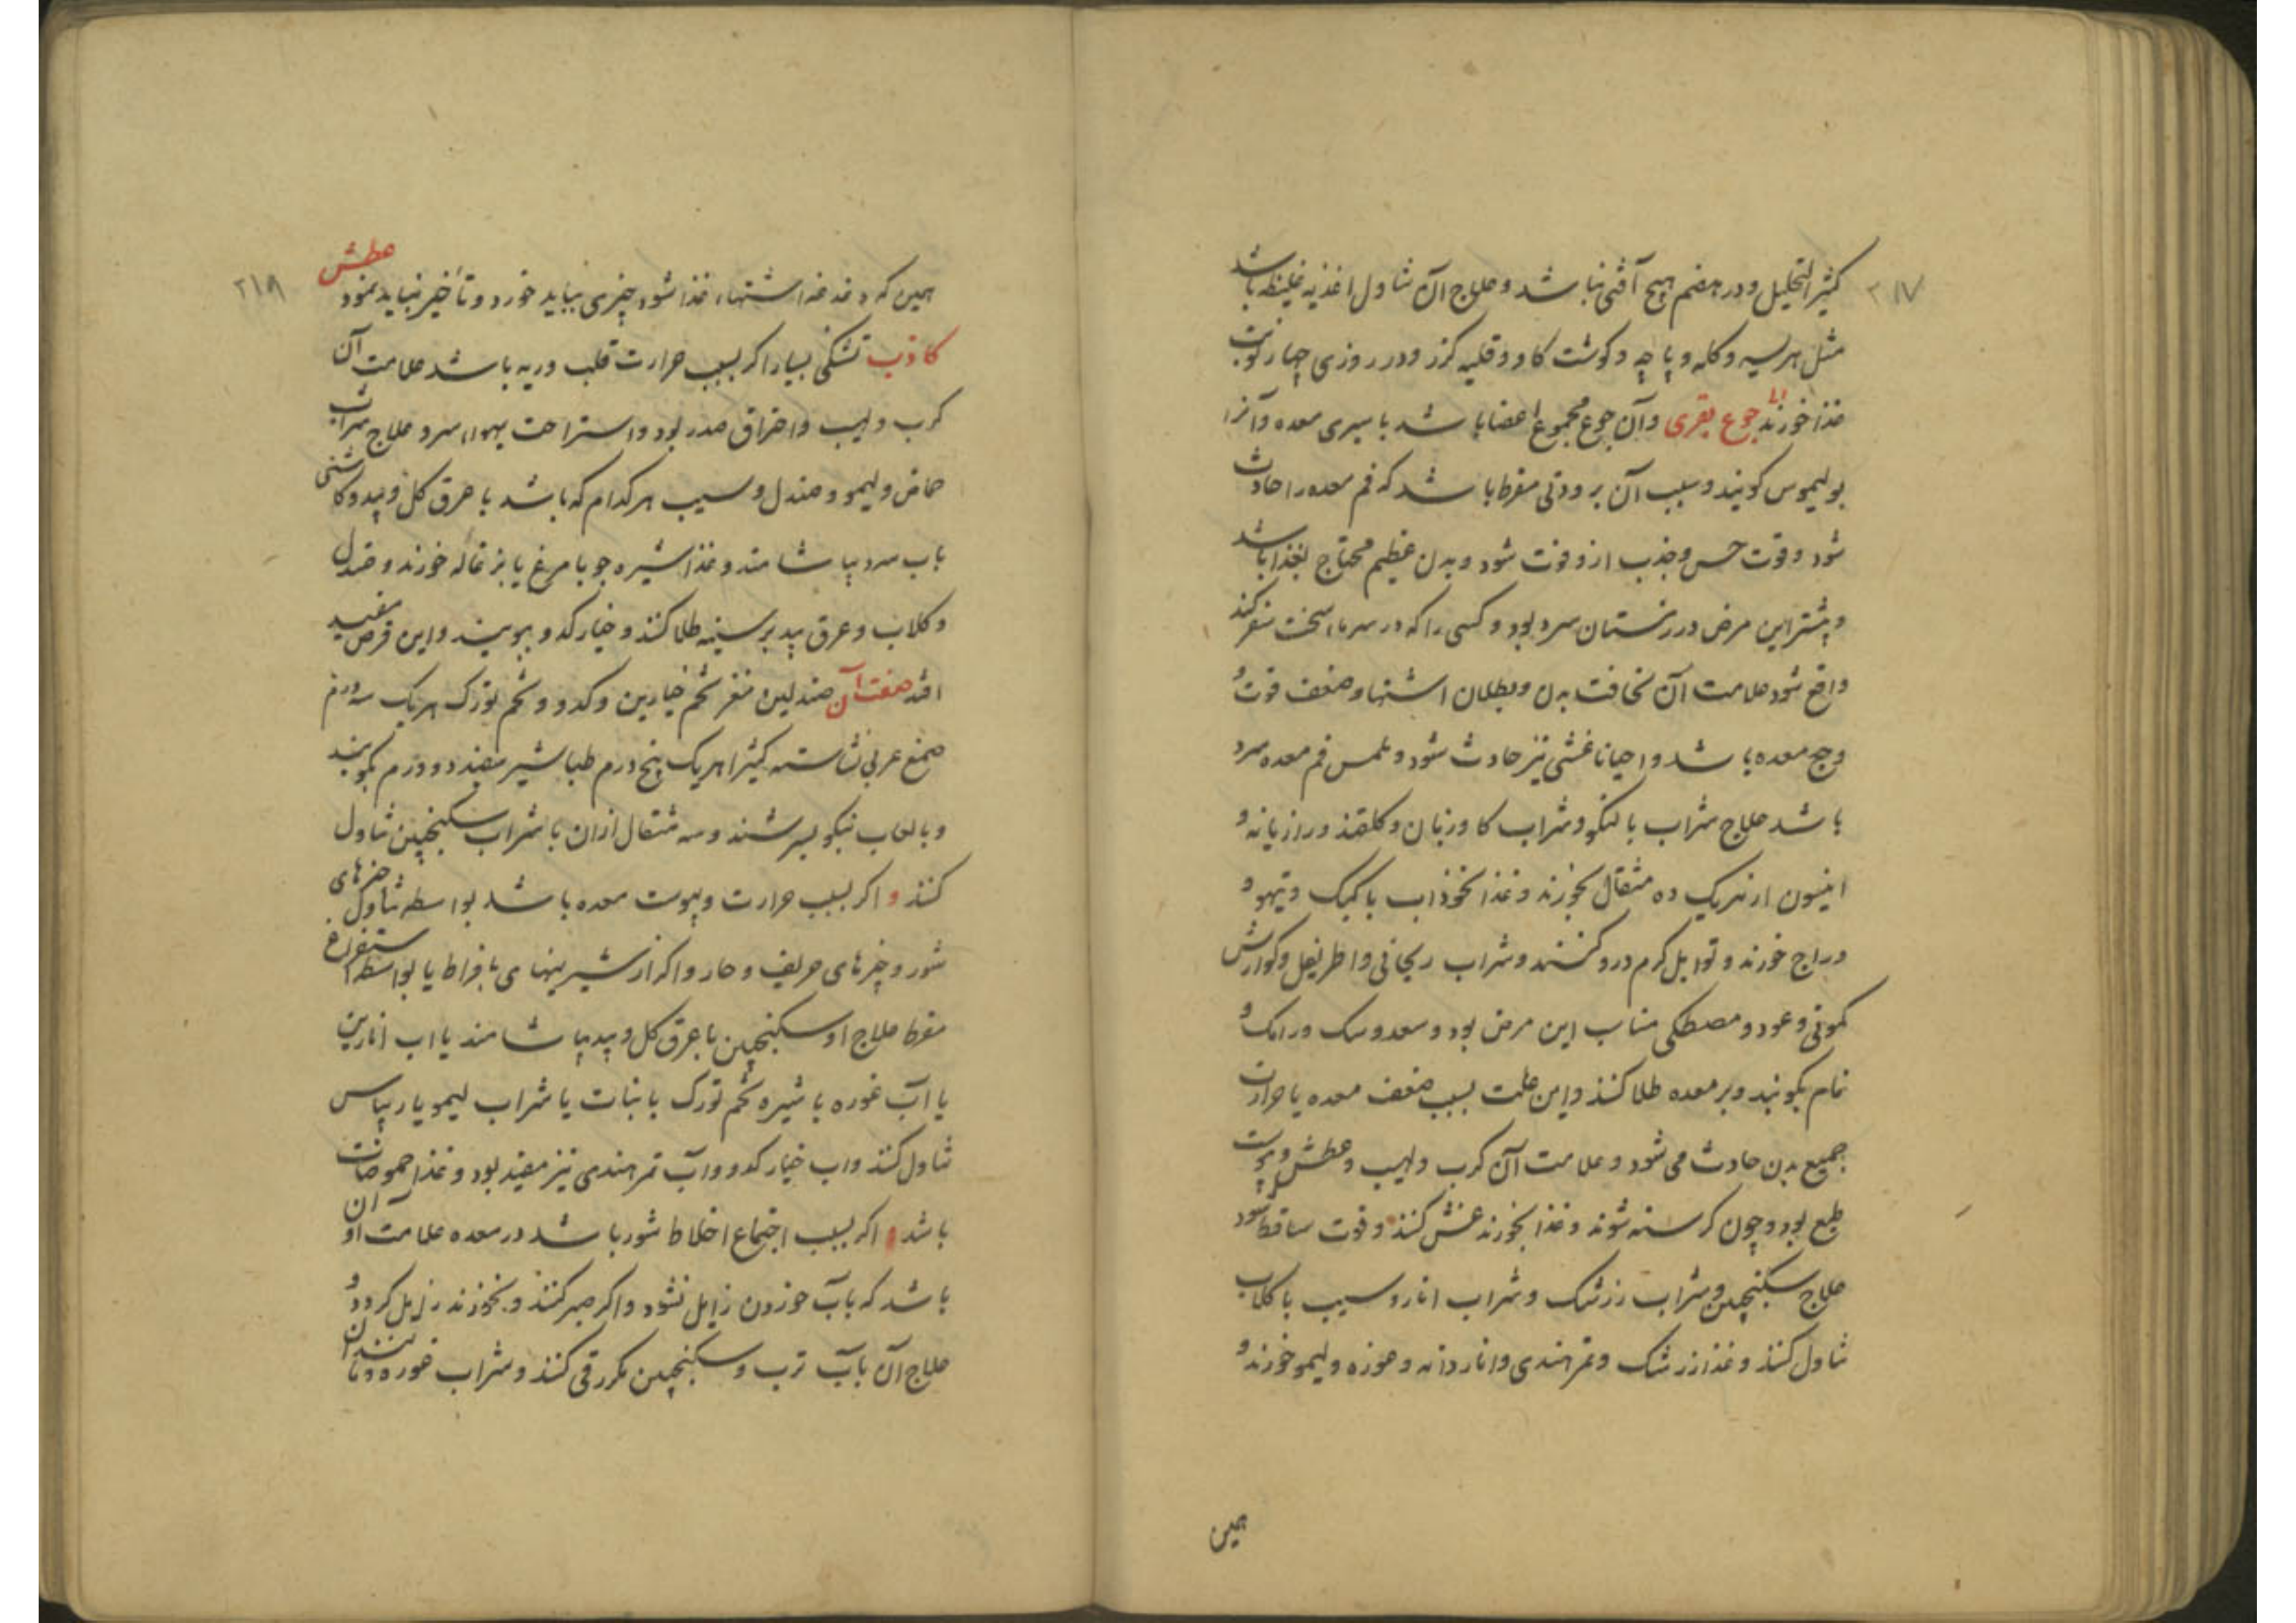 ۲۱۷
کثیر التحلیل و در هضم هیچ آفتی نباشد و علاج آن تناول اغذیه غلیظه باشد
مثل هریسه و کله و پاچه و کوشت کاو و قلیه کزر و در روزی چهار نوبت
غذا خورند اما جوع بقری و آن جوع مجموع اعضا باشد با سیری معده و آنرا
بولیموس کویند و سبب آن برودتی مفرط باشد که فم معده را حادث
شود و قوت حس و جذب ازو فوت شود و بدن عظیم محتاج بغذا باشد
و پیشتر این مرض در زمستان سرد بود و کسی را که در سرما سخت سفر کند
واقع شود علامت آن نحافت بدن و بطلان اشتها و ضعف قوت و
وجع معده باشد و احیانا غشی نیز حادث شود و ملمس فم معده سرد
باشد علاج شراب بالنکو و شراب کاوزبان و کلقند و رازیانه و
انیسون از هریک ده مثقال بخورند و غذا نخوداب با کبک و تیهو و
دراج خورند و توابل کرم درو کنند و شراب ریحانی و اطریفل و کوارش
کمونی و عود و مصطکی مناسب این مرض بود و سعد و سک و رامک و
نمام بکوبند و بر معده طلا کنند و این علت بسبب ضعف معده یا حرارت
جمیع بدن حادث می شود و علامت آن کرب و لهیب و عطش و یبوست
طبع بود و چون کرسنه شوند و غذا نخورند غش کنند و قوت ساقط شود
علاج سکنجبین و شراب زرشک و شراب انار و سیب با کلاب
تناول کنند و غذا زرشک و تمر هندی و اناردانه و غوره و لیمو خورند و
همین
۲۱۸
همین که دغدغه اشتهاء غذا شود چیزی بباید خورد و تأخیر نباید نمود عطش
کاذب تشنکی بسیار اکر بسبب حرارت قلب و ریه باشد علامت آن
کرب و لهیب و احتراق صدر بود و استراحت بهواء سرد علاج شراب
حماض و لیمو و صندل و سیب هرکدام که باشد با عرق کل و بید و کاسنی
باب سرد بیاشامند و غذا شیره جو با مرغ یا بزغاله خورند و صندل
و کلاب و عرق بید بر سینه طلا کنند و خیار کدو ببویند و این قرص مفید
افتد صفت آن صندلین مغز تخم خیارین و کدو و تخم تورک هریک سه درم
صمغ عربی نشاسته کتیرا هریک پنج درم طباشیر سفید دو درم بکوبند
و بالعاب نیکو بسرشند و سه مثقال ازان با شراب سکنجبین تناول
کنند و اکر بسبب حرارت و یبوست معده باشد بواسطه تناول چیزهای
شور و چیزهای حریف و حار و اکثار شیرینیهای بافراط یا بواسطه استفراغ
مفرط علاج او سکنجبین با عرق کل و بید بیاشامند یا اب انارین
یا آب غوره با شیره تخم تورک با نبات یا شراب لیمو یا ریباس
تناول کنند و اب خیار کدو و آب تمر هندی نیز مفید بود و غذا حموضات
باشد و اکر بسبب اجتماع اخلاط شور باشد در معده علامت او آن
باشد که بآب خوردن زایل نشود و اکر صبر کنند و نخورند زایل کردد و
علاج آن بآب ترب و سکنجبین مکرر قی کنند و شراب غوره و